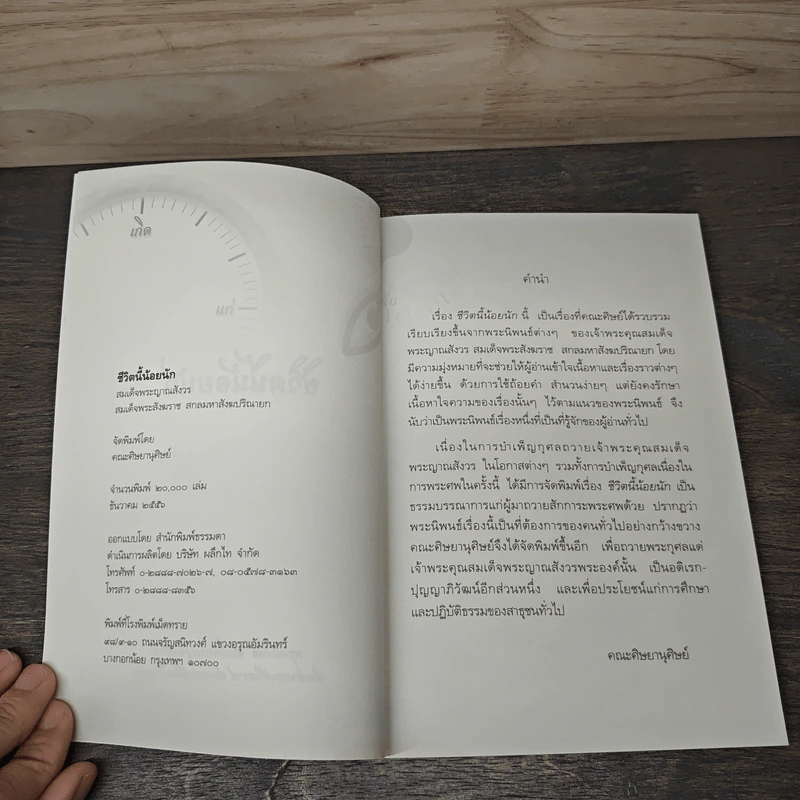 เกิด
แก่
ชีวิตนี้น้อยนัก
สมเด็จพระญาณสังวร
สมเด็จพระสังฆราช สกลมหาสังฆปริณายก
จัดพิมพ์โดย
คณะศิษยานุศิษย์
จำนวนพิมพ์ ๒๐,๐๐๐ เล่ม
ธันวาคม ๒๕๕๖
ออกแบบโดย สำนักพิมพ์ธรรมดา
ดำเนินการผลิตโดย บริษัท ผลึกไท จำกัด
โทรศัพท์ ๐-๒๘๘๘-๗๐๒๖-๗, ๐๘-๐๕๗๘-๓๑๖๓
โทรสาร ๐-๒๘๘๘-๘๓๕๖
พิมพ์ที่โรงพิมพ์เม็ดทราย
๙๘/๙-๑๐ ถนนจรัญสนิทวงศ์ แขวงอรุณอัมรินทร์
บางกอกน้อย กรุงเทพฯ ๑๐๗๐๐
คำนำ
เรื่อง ชีวิตนี้น้อยนัก นี้ เป็นเรื่องที่คณะศิษย์ได้รวบรวม
เรียบเรียงขึ้นจากพระนิพนธ์ต่างๆ ของเจ้าพระคุณสมเด็จ
พระญาณสังวร สมเด็จพระสังฆราช สกลมหาสังฆปริณายก โดย
มีความมุ่งหมายที่จะช่วยให้ผู้อ่านเข้าใจเนื้อหาและเรื่องราวต่างๆ
ได้ง่ายขึ้น ด้วยการใช้ถ้อยคำ สำนวนง่ายๆ แต่ยังคงรักษา
เนื้อหาใจความของเรื่องนั้นๆ ไว้ตามแนวของพระนิพนธ์ จึง
นับว่าเป็นพระนิพนธ์เรื่องหนึ่งที่เป็นที่รู้จักของผู้อ่านทั่วไป
เนื่องในการบำเพ็ญกุศลถวายเจ้าพระคุณสมเด็จ
พระญาณสังวร ในโอกาสต่างๆ รวมทั้งการบำเพ็ญกุศลเนื่องใน
การพระศพในครั้งนี้ ได้มีการจัดพิมพ์เรื่อง ชีวิตนี้น้อยนัก เป็น
ธรรมบรรณาการแก่ผู้มาถวายสักการะพระศพด้วย ปรากฏว่า
พระนิพนธ์เรื่องนี้เป็นที่ต้องการของคนทั่วไปอย่างกว้างขวาง
คณะศิษยานุศิษย์จึงได้จัดพิมพ์ขึ้นอีก เพื่อถวายพระกุศลแด่
เจ้าพระคุณสมเด็จพระญาณสังวรพระองค์นั้น เป็นอดิเรก-
ปุญญาภิวัฒน์อีกส่วนหนึ่ง และเพื่อประโยชน์แก่การศึกษา
และปฏิบัติธรรมของสาธุชนทั่วไป
คณะศิษยานุศิษย์